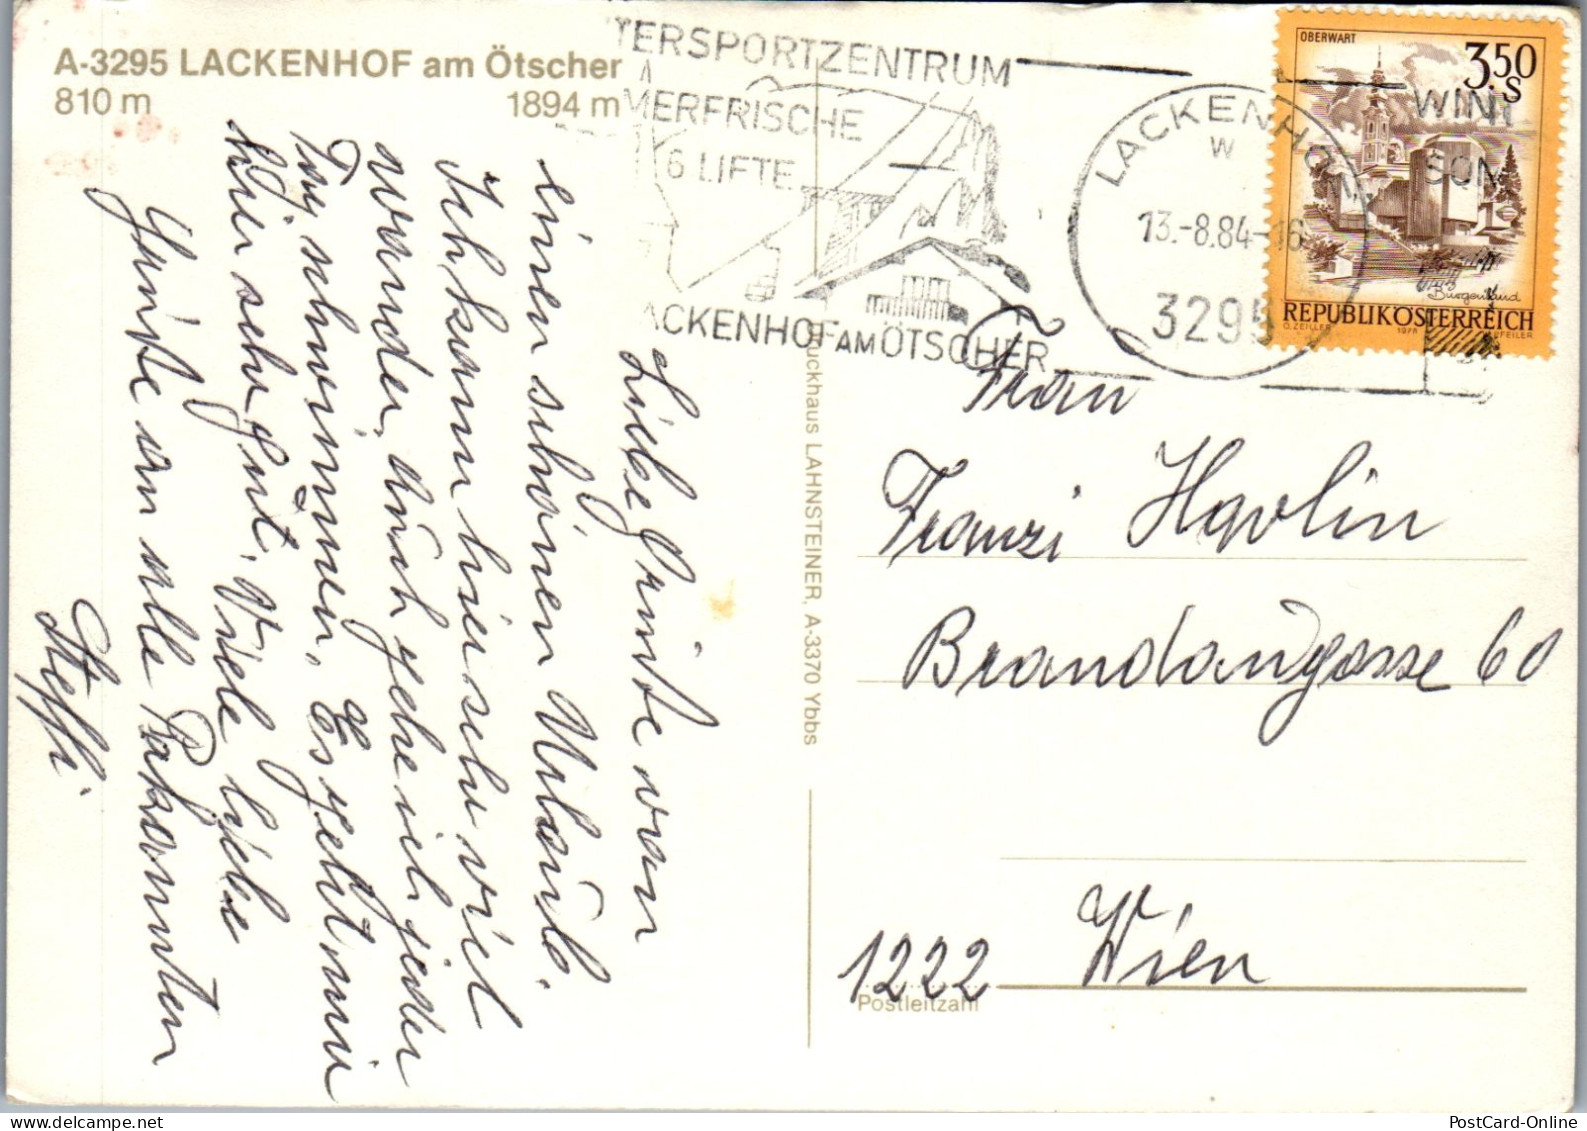 A-3295 LACKENHOF am Ötscher
810 m 1894 m
TERSPORTZENTRUM
MERFRISCHE
6 LIFTE
ACKENHOF AM ÖTSCHER
LACKENHOF
W
13.-8.84-16
3295
WIN
SON
OBERWART
3.50
S
Burgenland
REPUBLIK ÖSTERREICH
O. ZEILLER 1978 PFEILER
Liebe Grüße von
einen schönen Urlaub.
Ich kann hier sehr viel
wandern, auch gehe ich jeden
Tag schwimmen. Es geht mir
hier sehr gut. Viele liebe
Grüße an alle Bekannten
Steffi.
Druckhaus LAHNSTEINER, A-3370 Ybbs
Frau
Franzi Havlin
Brandangasse 60
1222 Wien
Postleitzahl
PostCard-Online